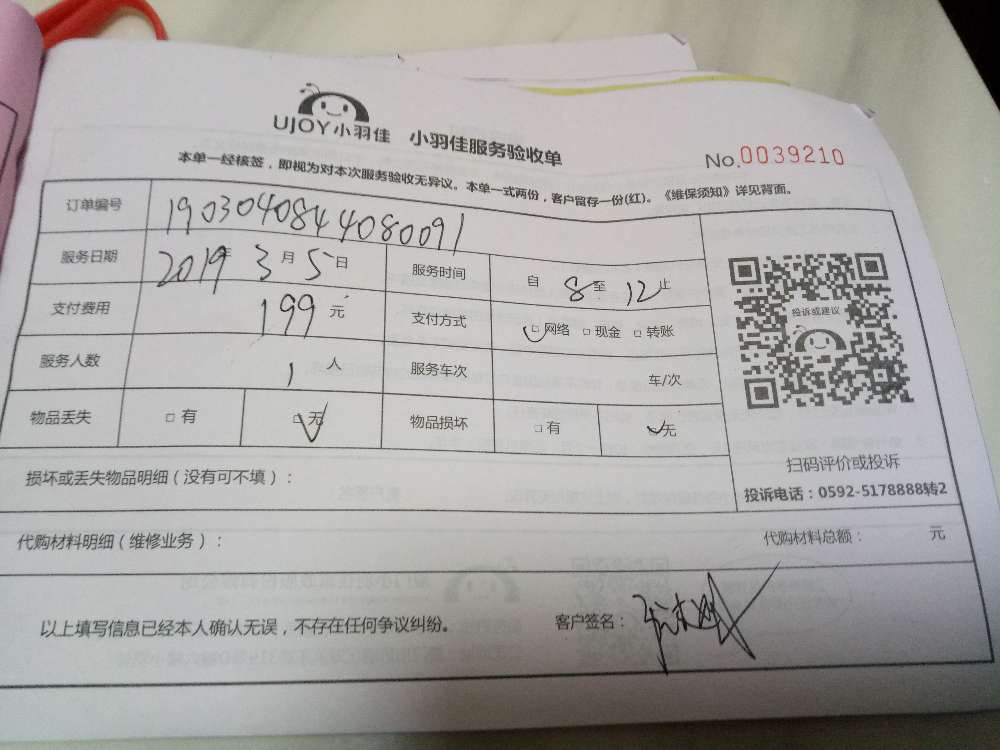 UJOY小羽佳 小羽佳服务验收单
No.0039210
本单一经核签，即视为对本次服务验收无异议。本单一式两份，客户留存一份(红)。《维保须知》详见背面。
订单编号 1903040844080091
服务日期 2019年3月5日 服务时间 自8至12止
支付费用 199元 支付方式 □网络 □现金 □转账
服务人数 1人 服务车次 车/次
物品丢失 □有 □无 物品损坏 □有 □无
投诉或建议
扫码评价或投诉
投诉电话：0592-5178888转2
损坏或丢失物品明细（没有可不填）：
代购材料明细（维修业务）： 代购材料总额： 元
以上填写信息已经本人确认无误，不存在任何争议纠纷。 客户签名：